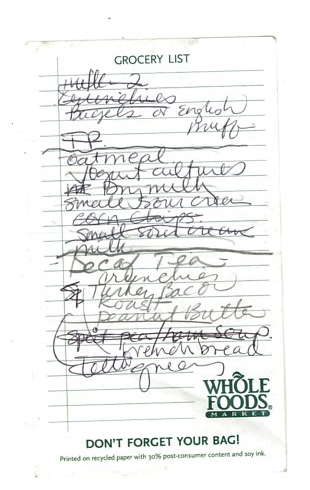 GROCERY LIST
milk 2
crunchies
Bagels or English
Muff
T.P.
oatmeal
Yogurt cultures
Dry milk
small sour crea
corn Chips
Small sour cream
milk
Decaf Tea
crunchies
Turkey Bacon
Roast
Peanut Butter
Split pea/ham soup
French bread
Jello greens
WHOLE
FOODS
MARKET
DON'T FORGET YOUR BAG!
Printed on recycled paper with 30% post-consumer content and soy ink.